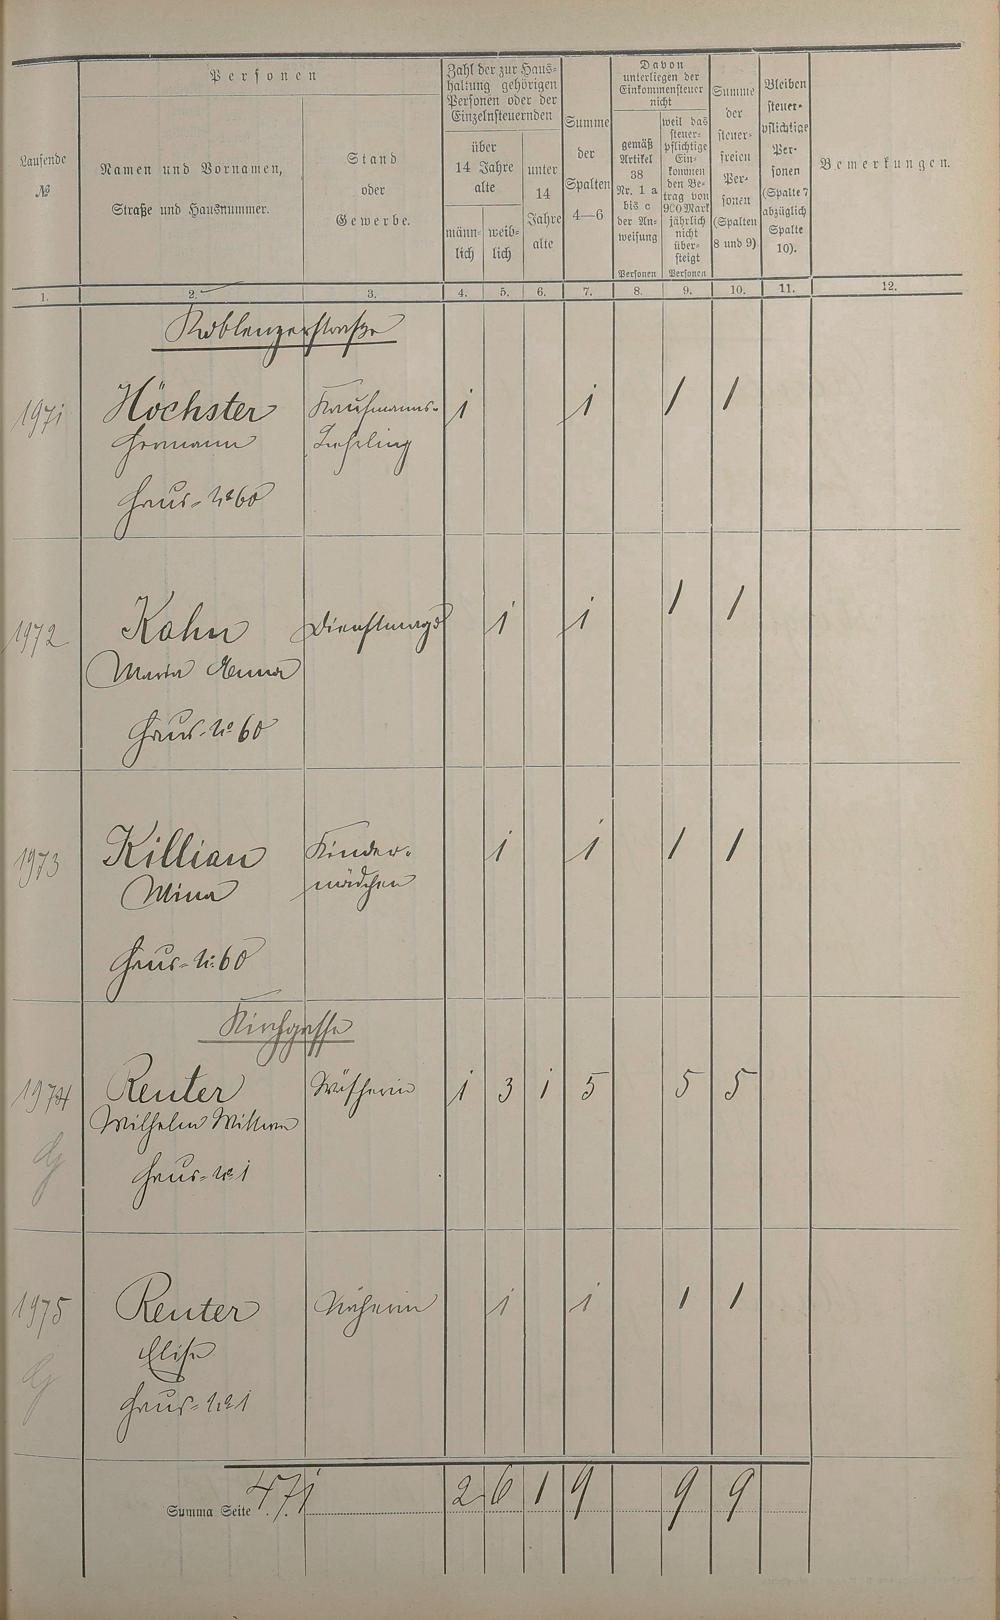 Laufende
№
Personen
Namen und Vornamen,
Straße und Hausnummer.
Stand
oder
Gewerbe.
Zahl der zur Haus-
haltung gehörigen
Personen oder der
Einzelnsteuernden
über
14 Jahre
alte
männ-
lich
weib-
lich
unter
14
Jahre
alte
Summe
der
Spalten
4—6
Davon
unterliegen der
Einkommensteuer
nicht
gemäß
Artikel
38
Nr. 1 a
bis c
der An-
weisung
Personen
weil das
steuer-
pflichtige
Ein-
kommen
den Be-
trag von
900 Mark
jährlich
nicht
über-
steigt
Personen
Summe
der
steuer-
freien
Per-
sonen
(Spalten
8 und 9)
Bleiben
steuer-
pflichtige
Per-
sonen
(Spalte 7
abzüglich
Spalte
10).
Bemerkungen.
1. 2. 3. 4. 5. 6. 7. 8. 9. 10. 11. 12.
Koblenzerstraße
1971 Höchster Kaufmanns- 1 1 1 1
Hermann Lehrling
Haus-No 60
1972 Kahn Dienstmagd 1 1 1 1
Maria Anna
Haus-No 60
1973 Killian Kinder- 1 1 1 1
Mina mädchen
Haus-No 60
Kirchgasse
1974 Reuter Wäscherin 1 3 1 5 5 5
Wilhelm Wittwe
Haus-No 1
1975 Reuter Näherin 1 1 1 1
Elise
Haus-No 1
Summa Seite 471 2 6 1 9 9 9